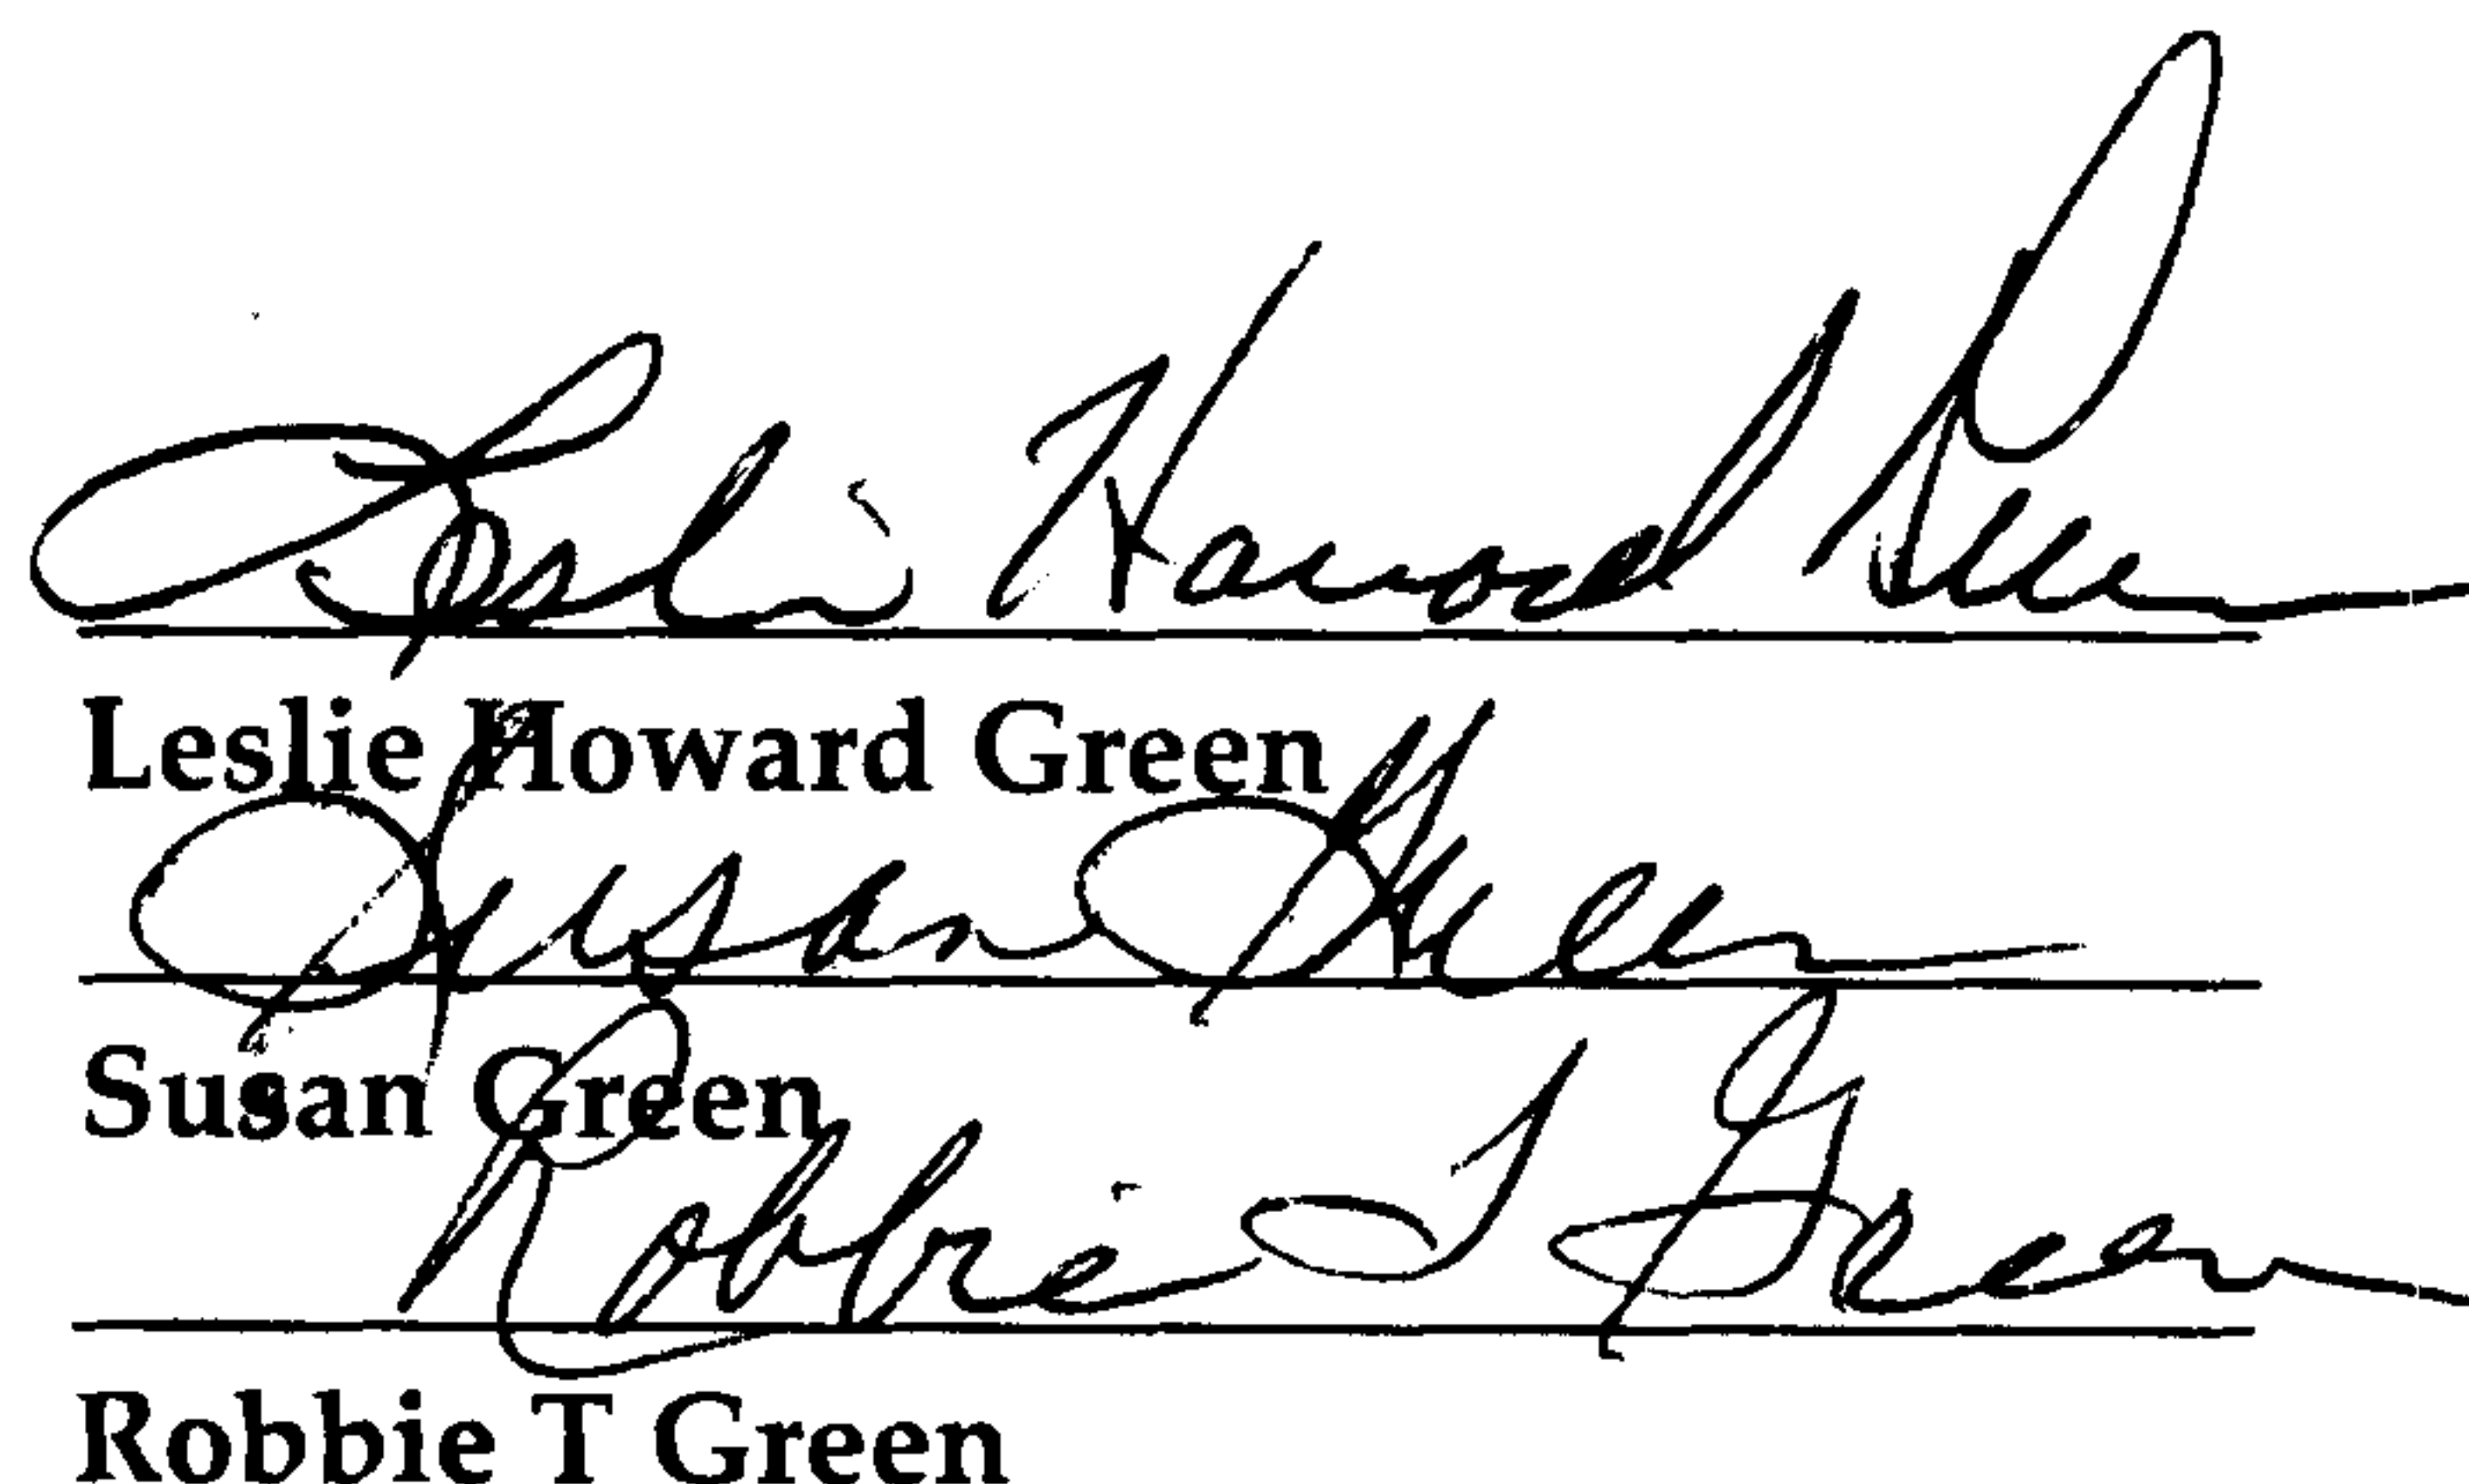 Leslie Howard Green
Leslie Howard Green
Susan Green
Susan Green
Robbie T Green
Robbie T Green